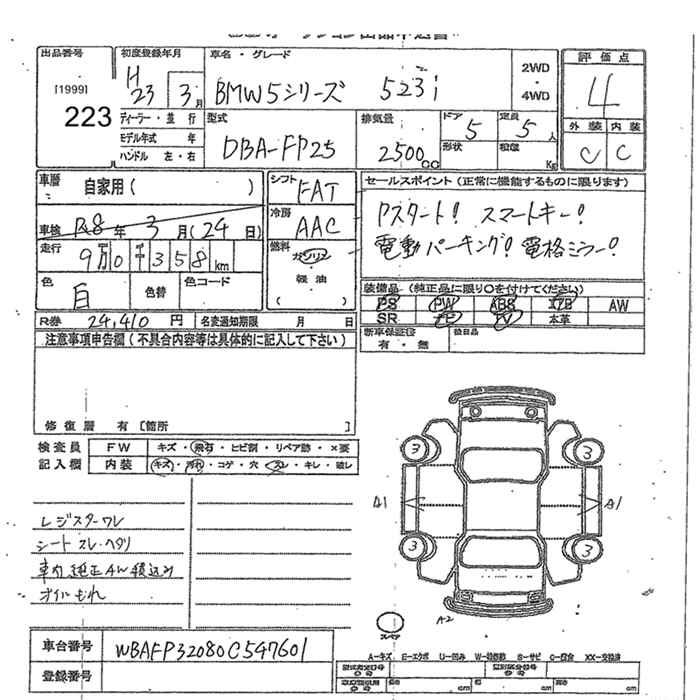 出品番号 初度登録年月 車名・グレード 2WD・4WD 評価点
[1999] 223 H23年 3月 BMW5シリーズ 523i 4
ディーラー・並行 型式 排気量 ドア 定員 外装 内装
モデル年式 年 DBA-FP25 2500cc 5 5人 C C
ハンドル 左・右 形状 積載 Kg
車歴 自家用( ) シフト FAT セールスポイント(正常に機能するものに限ります)
車検 R8年 3月(24日) 冷房 AAC Pスタート! スマートキー!
走行 9万0千358km 燃料 ガソリン・軽油( ) 電動パーキング! 電格ミラー!
色 白 色替 色コード 装備品(純正品に限り○を付けてください)
PS PW ABS エアB AW
R券 24,410円 名変通知期限 月 日 SR TV 本革
注意事項申告欄(不具合内容等は具体的に記入して下さい) 新車保証書 有・無 後日品
修復歴 有[箇所 ]
検査員 FW キズ・飛石・ヒビ割・リペア跡・×要
記入欄 内装 キズ・汚れ・コゲ・穴・スレ・キレ・破レ
3 3
A1 A1
レジスターワレ
シートスレ・ヘタリ
車内純正AW積込み
オイルもれ
3 3
A2
スペア
車台番号 WBAFP32080C547601
登録番号
A-キズ E-エクボ U-凹み S-サビ C-腐食 XX-交換済
cm cm cm